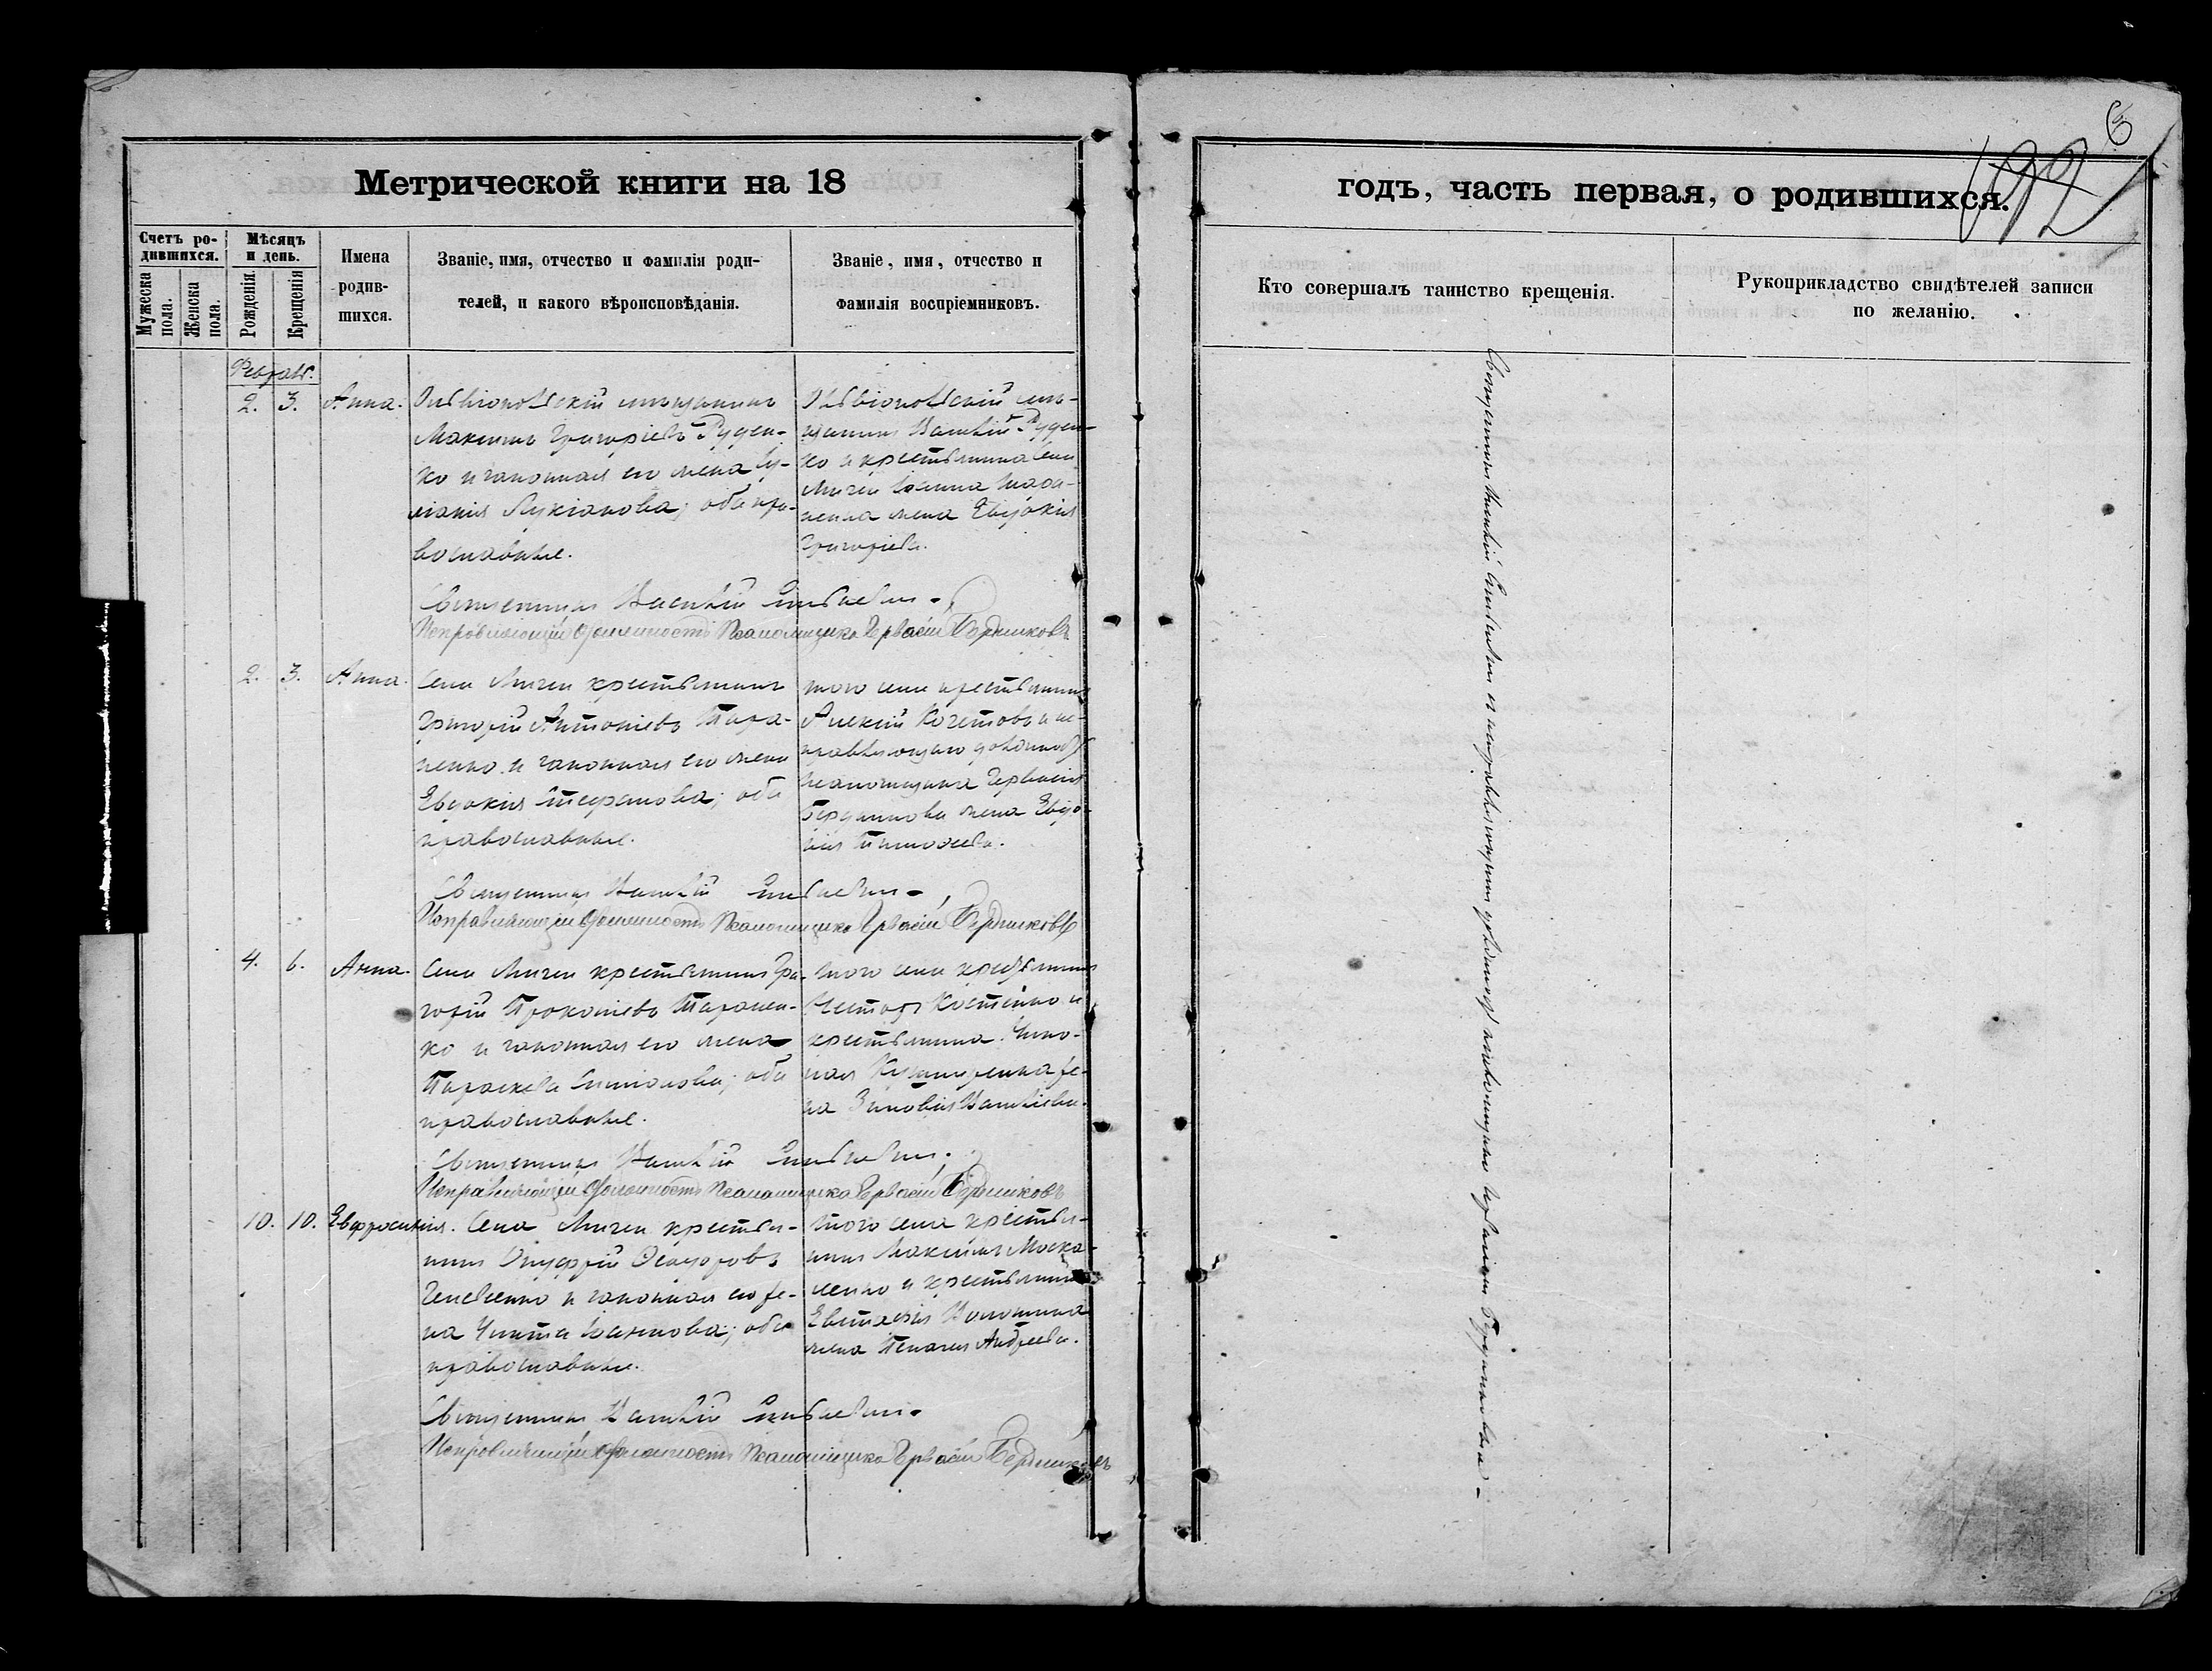 6
192
Метрической книги на 18
годъ, часть первая, о родившихся.
Счетъ ро-
дившихся.
Мужеска
пола.
Женска
пола.
Мѣсяцъ
и день.
Рожденія.
Крещенія
Имена
родив-
шихся.
Званіе, имя, отчество и фамилія роди-
телей, и какого вѣроисповѣданія.
Званіе, имя, отчество и
фамилія воспріемниковъ.
Кто совершалъ таинство крещенія.
Рукоприкладство свидѣтелей записи
по желанію.
2. 3. Анна.
мѣщанинъ
Максимъ Григоріевъ Руден-
ко и законная его жена
Лукіанова; оба пра-
вославные.
щанинъ Василій Руден-
ко и крестьянина села
жена Евдокія
Григоріева.
Священникъ Василій
Исправляющій должность Псаломщика Гервасій Бердниковъ
2. 3. Анна.
Села крестьянинъ
Григорій Антоніевъ Тара-
ненко и законная его жена
Евдокія Стефанова; оба
православные.
того села крестьянинъ
Алексій Кочетовъ и ис-
правляющаго должность
псаломщика Гервасія
Бердникова жена Евдо-
кія Тимофеева.
Священникъ Василій
Исправляющій должность Псаломщика Гервасій Бердниковъ
4. 6. Анна.
Села крестьянинъ Гри-
горій Прокопіевъ Таранен-
ко и законная его жена
Параскева оба
православные.
того села крестьянинъ
Несторъ Костенко и
крестьянина
же-
на Зиновія Василіева.
Священникъ Василій
Исправляющій должность Псаломщика Гервасій Бердниковъ
10. 10. Евфросинія.
Села крестья-
нинъ Онуфрій Ѳеодоровъ
и законная его же-
на Іоаннова; оба
православные.
того села крестья-
нинъ Максимъ Моска-
ленко и крестьянина
Евстафія Волошина
жена Пелагія Андреева.
Священникъ Василій
Исправляющій должность Псаломщика Гервасій Бердниковъ
Священникъ Василій съ исправляющимъ должность псаломщика Гервасіемъ Бердниковымъ